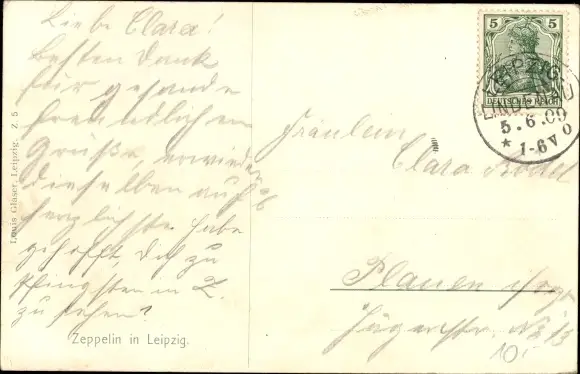 Liebe Clara!
Besten Dank
für gesande
freundlichen
Grüße, erwiedre
dieselben auf
herzlichste. Habe
gehofft, Dich zu
Pfingsten in L.
zu sehen?
Zeppelin in Leipzig.
Louis Glaser, Leipzig. Z. 5
5 5
DEUTSCHES REICH
LEIPZIG-
LINDENAU
5.6.09
* 1-6 V
Fräulein
Clara
Plauen i. Vogt
Jägerstr. No. 13
10.-